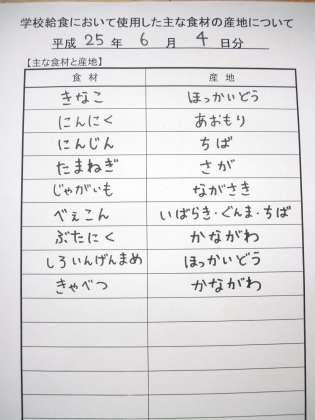 学校給食において使用した主な食材の産地について
平成 25 年 6 月 4 日分
【主な食材と産地】
食材 産地
きなこ ほっかいどう
にんにく あおもり
にんじん ちば
たまねぎ さが
じゃがいも ながさき
べぇこん いばらき・ぐんま・ちば
ぶたにく かながわ
しろいんげんまめ ほっかいどう
きゃべつ かながわ